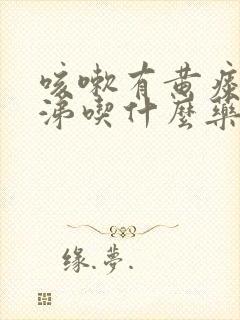 咳嗽有黄痰
涕喫什麼藥
缘.梦.